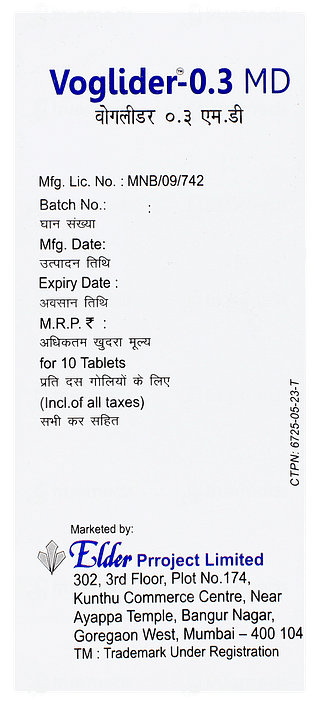 Voglider™-0.3 MD
वोगलीडर ०.३ एम.डी
Mfg. Lic. No. : MNB/09/742
Batch No.: :
घान संख्या
Mfg. Date:
उत्पादन तिथि
Expiry Date :
अवसान तिथि
M.R.P. ₹ :
अधिकतम खुदरा मूल्य
for 10 Tablets
प्रति दस गोलियों के लिए
(Incl.of all taxes)
सभी कर सहित
CTPN: 6725-05-23-T
Marketed by:
Elder Prroject Limited
302, 3rd Floor, Plot No.174,
Kunthu Commerce Centre, Near
Ayappa Temple, Bangur Nagar,
Goregaon West, Mumbai – 400 104
TM : Trademark Under Registration